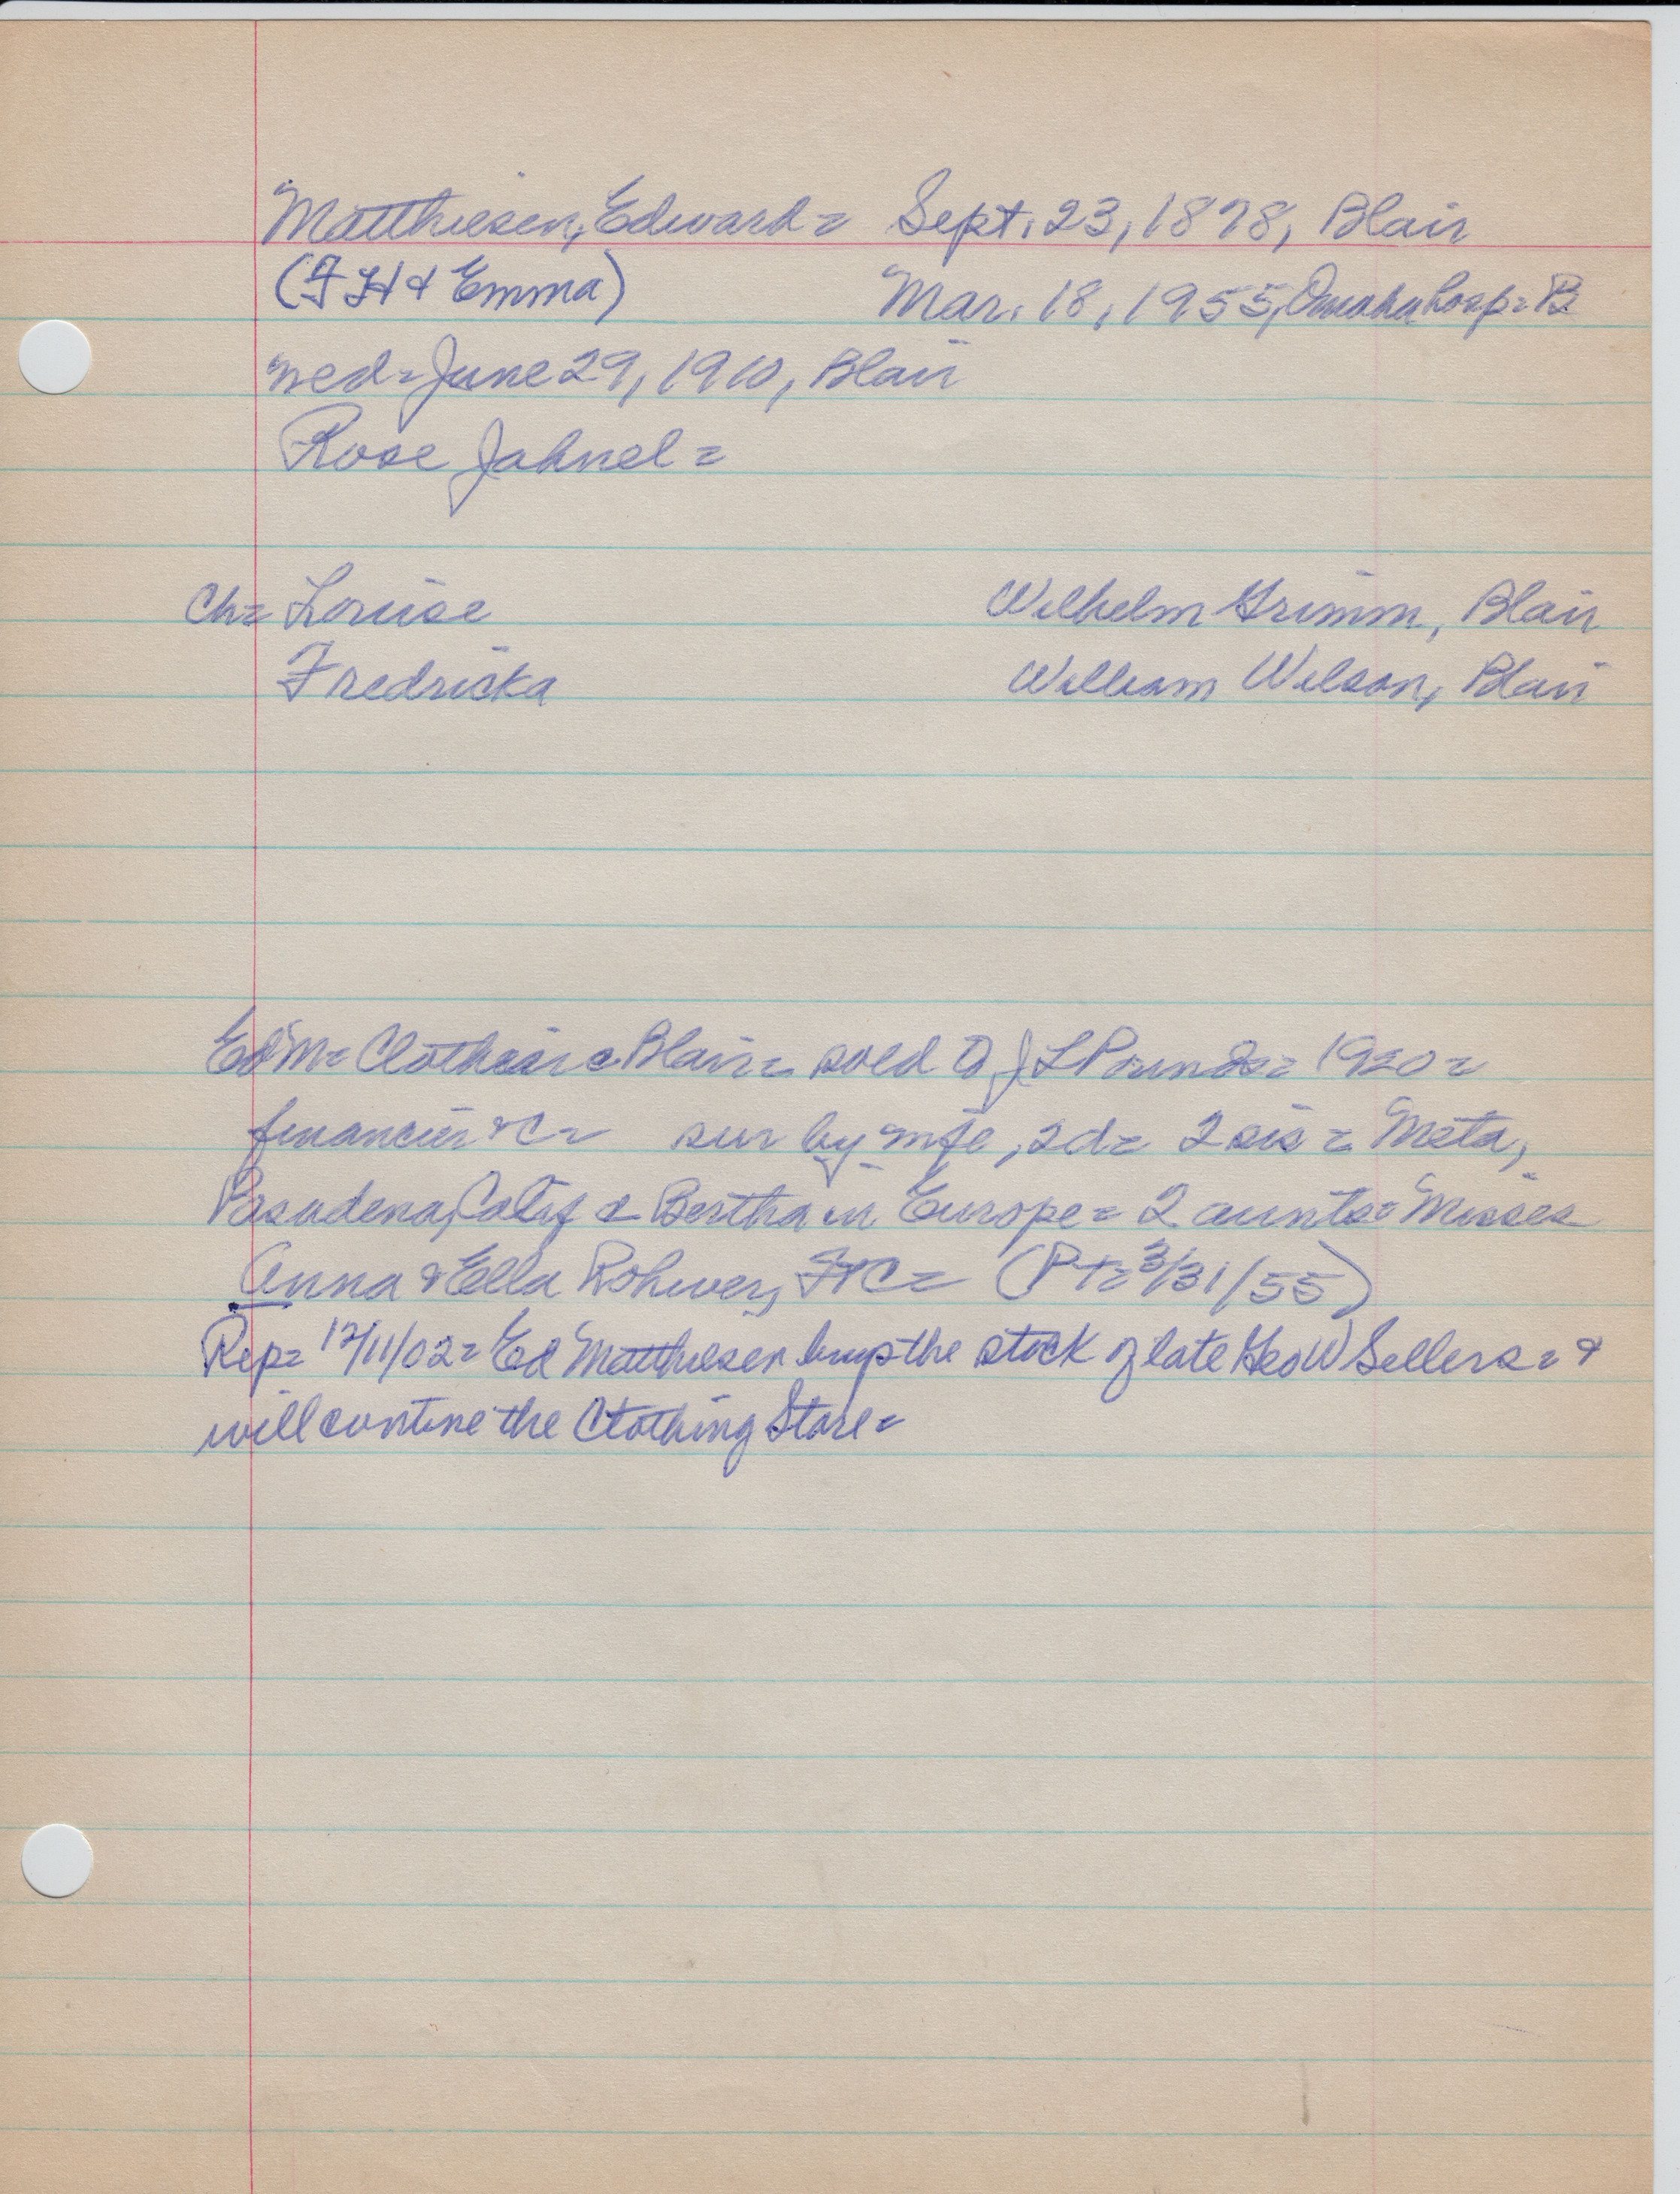 Matthiesen, Edward = Sept. 23, 1878, Blair
(FH & Emma) Mar. 18, 1955, Omaha hosp = B
wed = June 29, 1910, Blair
Rose Jahnel =
Ch = Louise Wilhelm Grimm, Blair
Fredricka William Wilson, Blair
Ed M = Clothier = Blair = sold to J L Pounds = 1920 =
financier & C = sur by wife, 2d = 2 sis = Meta,
Pasadena, Calif & Bertha in Europe = 2 aunts = Misses
Anna & Ella Rohwer, Ft C = (PT = 3/31/55)
Rep = 12/11/02 = Ed Matthiesen buys the stock of late Geo W Sellers = &
will contine the Clothing Store =